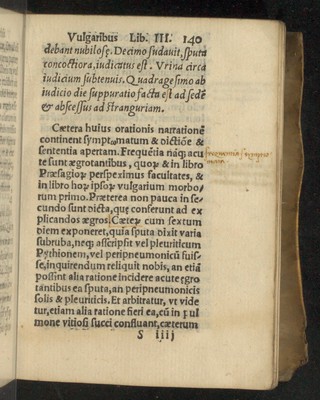 Vulgaribus Lib. III. 140
debant nubilosę. Decimo sudauit, sputa
concoctiora, iudicatus est. Vrina circa
iudicium subtenuis. Quadragesimo ab
iudicio die suppuratio facta est ad sedē
& abscessus ad stranguriam.
Cætera huius orationis narrationē
continent symptomatum & dictiōē &
sententia apertam. Frequētia nāq; acu
te sunt ægrotantibus, quoꝝ & in libro
Præsagioꝝ perspeximus facultates, &
in libro hoꝝ ipsoꝝ vulgarium morbo/
rum primo. Præterea non pauca in se/
cundo sunt dicta, quę conferunt ad ex
plicandos ægros. Cæteꝝ cum sextum
diem exponeret, quia sputa dixit varia
subrubra, neq; asseripsit vel pleuriticum
Pythionem, vel peripneumonicū fuis-
se, inquirendum reliquit nobis, an etiā
possint alia ratione incidere acute ęgro
tantibus ea sputa, an peripneumonicis
solis & pleuriticis. Et arbitratur, vt vide
tur, etiam alia ratione fieri ea, cū in pul
mone vitiosi succi confluant, cæterum
S iiij